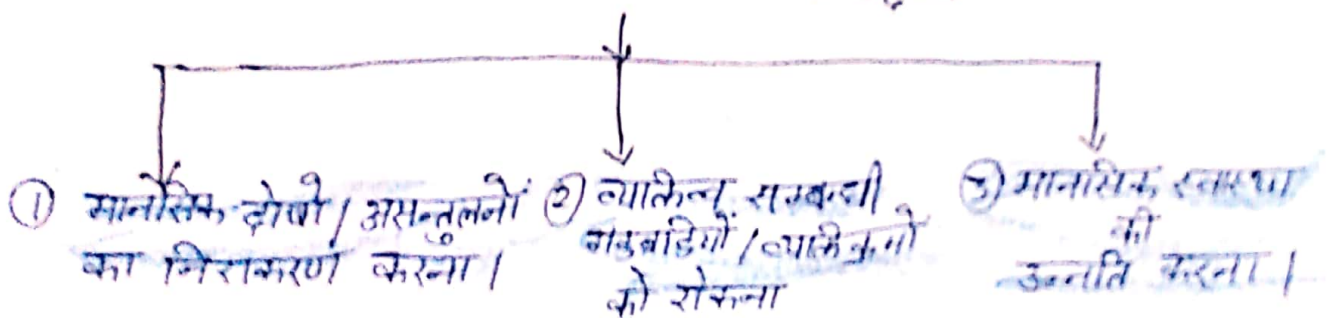 ① मानसिक दोषों / असन्तुलनों
का निराकरण करना।
② व्यक्तित्व सम्बन्धी
गड़बड़ियों / व्यतिक्रमों
को रोकना
③ मानसिक स्वास्थ्य
की
उन्नति करना।